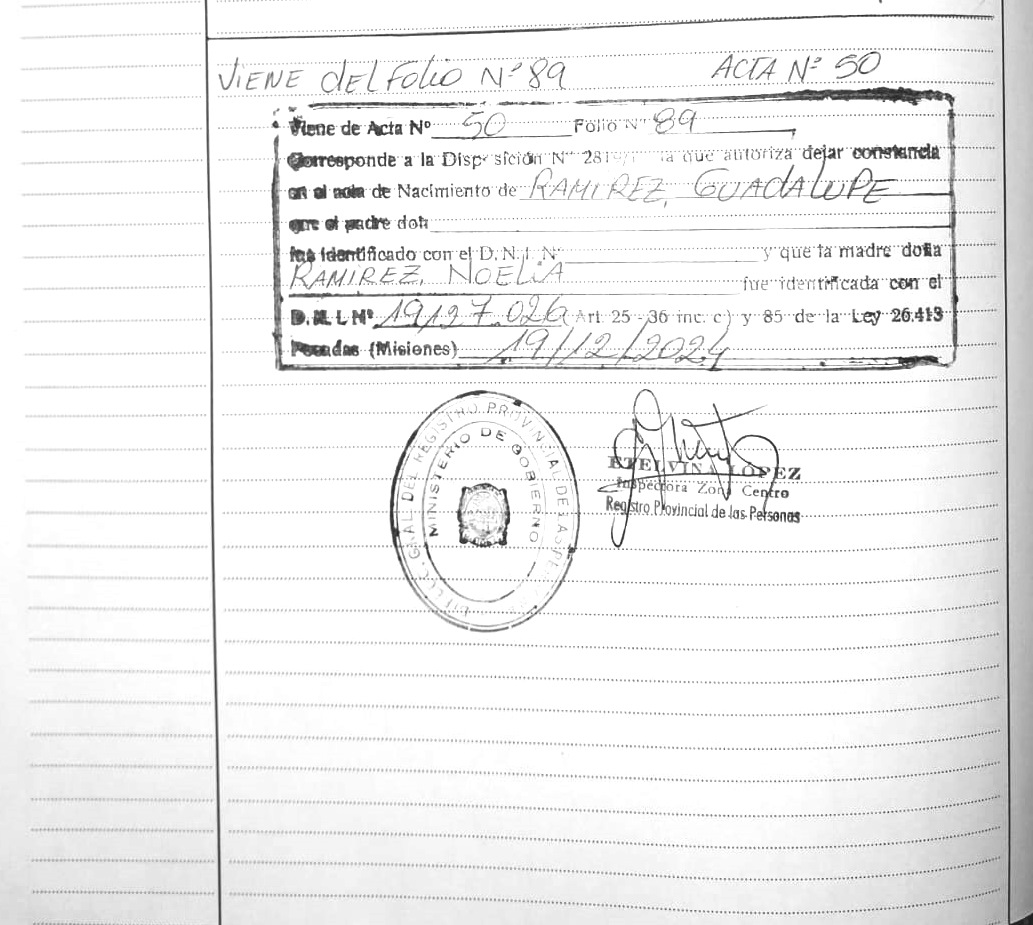 VIENE del Folio Nº 89 ACTA Nº 50
Viene de Acta Nº 50 Folio Nº 89
Corresponde a la Disposición Nº la que autoriza dejar constancia
en el acta de Nacimiento de RAMIREZ, GUADALUPE
que el padre don
fue identificado con el D.N.I. Nº y que la madre doña
RAMIREZ, NOELIA fue identificada con el
D.N.I. Nº 19127.026 (Art. 25 - 36 inc. c) y 85 de la Ley 26.413
Posadas (Misiones) 19/12/2024
GRAL. DEL REGISTRO PROVINCIAL DE LAS
MINISTERIO DE GOBIERNO
ETELVINA LOPEZ
Inspectora Zona Centro
Registro Provincial de las Personas